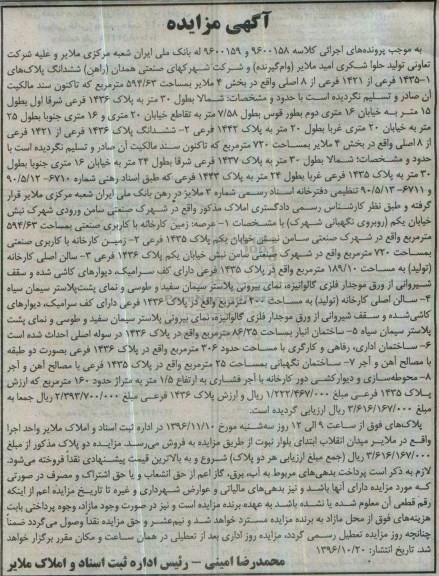 آگهی مزایده
به موجب پرونده‌های اجرائی کلاسه ۹۶۰۰۱۵۸ و ۹۶۰۰۱۵۹ له بانک ملی ایران شعبه مرکزی ملایر و علیه شرکت
تعاونی تولید حلوا شکری امید ملایر (وام‌گیرنده) و شرکت شهرکهای صنعتی همدان (راهن) ششدانگ پلاک‌های
۱-۱۴۳۵ فرعی از ۱۴۲۱ فرعی از ۸ اصلی واقع در بخش ۴ ملایر بمساحت ۵۹۴/۶۳ مترمربع که تاکنون سند مالکیت
آن صادر و تسلیم نگردیده است با حدود و مشخصات: شمالا بطول ۳۰ متر به پلاک ۱۴۳۶ فرعی شرقا اول بطول
۱۵ متر به خیابان ۱۶ متری دوم بطور قوس بطول ۷/۵۸ متر به تقاطع خیابان ۲۰ متری و ۱۶ متری جنوبا بطول ۲۵
متر به خیابان ۲۰ متری غربا بطول ۲۰ متر به پلاک ۱۴۲۲ فرعی ۲- ششدانگ پلاک ۱۴۳۶ فرعی از ۱۴۲۱ فرعی
از ۸ اصلی واقع در بخش ۴ ملایر بمساحت ۷۲۰ مترمربع که تاکنون سند مالکیت آن صادر و تسلیم نگردیده است با
حدود و مشخصات: شمالا بطول ۳۰ متر به پلاک ۱۴۳۷ فرعی شرقا بطول ۲۴ متر به خیابان ۱۶ متری جنوبا بطول
۳۰ متر به پلاک ۱۴۳۵ فرعی غربا بطول ۲۴ متر به پلاک ۱۴۲۳ فرعی که طبق اسناد رهنی شماره ۶۷۱۰- ۹۰/۵/۱۲
و ۶۷۱۱- ۹۰/۵/۱۳ تنظیمی دفترخانه اسناد رسمی شماره ۳ ملایر در رهن بانک ملی ایران شعبه مرکزی ملایر قرار
گرفته و طبق نظر کارشناس رسمی دادگستری املاک مذکور واقع در شهرک صنعتی سامن ورودی شهرک نبش
خیابان یکم (روبروی نگهبانی شهرک) با مشخصات ۱- عرصه: زمین کارخانه با کاربری صنعتی بمساحت ۵۹۴/۶۳
مترمربع واقع در شهرک صنعتی سامن نبش خیابان یکم پلاک ۱۴۳۵ فرعی ۲- زمین کارخانه با کاربری صنعتی
بمساحت ۷۲۰ مترمربع واقع در شهرک صنعتی سامن نبش خیابان یکم پلاک ۱۴۳۶ فرعی ۳- سالن اصلی کارخانه
(تولید) به مساحت ۱۸۹/۱۰ مترمربع واقع در پلاک ۱۴۳۵ فرعی دارای کف سرامیک، دیوارهای کاشی شده و سقف
شیروانی از ورق موجدار فلزی گالوانیزه، نمای بیرونی پلاستر سیمان سفید و طوسی و نمای پشت پلاستر سیمان سیاه
۴- سالن اصلی کارخانه (تولید) به مساحت ۲۰۰ مترمربع واقع در پلاک ۱۴۳۶ فرعی دارای کف سرامیک، دیوارهای
کاشی شده و سقف شیروانی از ورق موجدار فلزی گالوانیزه، نمای بیرونی پلاستر سیمان سفید و طوسی و نمای پشت
پلاستر سیمان سیاه ۵- ساختمان انبار بمساحت ۸۶/۳۵ مترمربع واقع در پلاک ۱۴۳۶ در سوله اصلی احداث شده است
۶- ساختمان اداری، رفاهی و کارگری با مساحت حدود ۳۰۶ مترمربع واقع در پلاک ۱۴۳۶ فرعی بصورت دو طبقه
با مصالح آهن و آجر ۷- ساختمان نگهبانی بمساحت ۲۵ مترمربع واقع در پلاک ۱۴۳۵ فرعی با مصالح آهن و آجر
۸- محوطه‌سازی و دیوارکشی دور کارخانه با آجر فشاری به ارتفاع ۱/۵ متر به متراژ حدود ۱۶۰ مترمربع که ارزش
پلاک ۱۴۳۵ فرعی مبلغ ۱/۲۲۲/۴۶۷/۰۰۰ ریال و ارزش پلاک ۱۴۳۶ فرعی مبلغ ۲/۳۹۳/۷۰۰/۰۰۰ ریال جمعا به
مبلغ ۳/۶۱۶/۱۶۷/۰۰۰ ریال ارزیابی گردیده است.
پلاک‌های فوق از ساعت ۹ الی ۱۲ روز سه‌شنبه مورخ ۱۳۹۶/۱۱/۱۰ در اداره ثبت اسناد و املاک ملایر واحد اجرا
واقع در ملایر میدان انقلاب ابتدای بلوار نبوت از طریق مزایده به فروش می‌رسد. مزایده دو پلاک مذکور از مبلغ
۳/۶۱۶/۱۶۷/۰۰۰ ریال (جمع مبلغ ارزیابی هر دو پلاک) شروع و به بالاترین قیمت پیشنهادی نقداً فروخته می‌شود.
لازم به ذکر است پرداخت بدهی‌های مربوط به آب، برق، گاز اعم از حق انشعاب و یا حق اشتراک و مصرف در صورتی
که مورد مزایده دارای آنها باشد و نیز بدهی‌های مالیاتی و عوارض شهرداری و غیره تا تاریخ مزایده اعم از اینکه
رقم قطعی آن معلوم شده یا نشده باشد به عهده برنده مزایده است و نیز در صورت وجود مازاد، وجوه پرداختی بابت
هزینه‌های فوق از محل مازاد به برنده مزایده مسترد خواهد شد و نیم‌عشر و حق مزایده نقداً وصول می‌گردد ضمناً
چنانچه روز مزایده تعطیل رسمی گردد، مزایده روز اداری بعد از تعطیلی در همان ساعت و مکان مقرر برگزار خواهد
شد. تاریخ انتشار: ۱۳۹۶/۱۰/۲۰
محمدرضا امینی – رئیس اداره ثبت اسناد و املاک ملایر